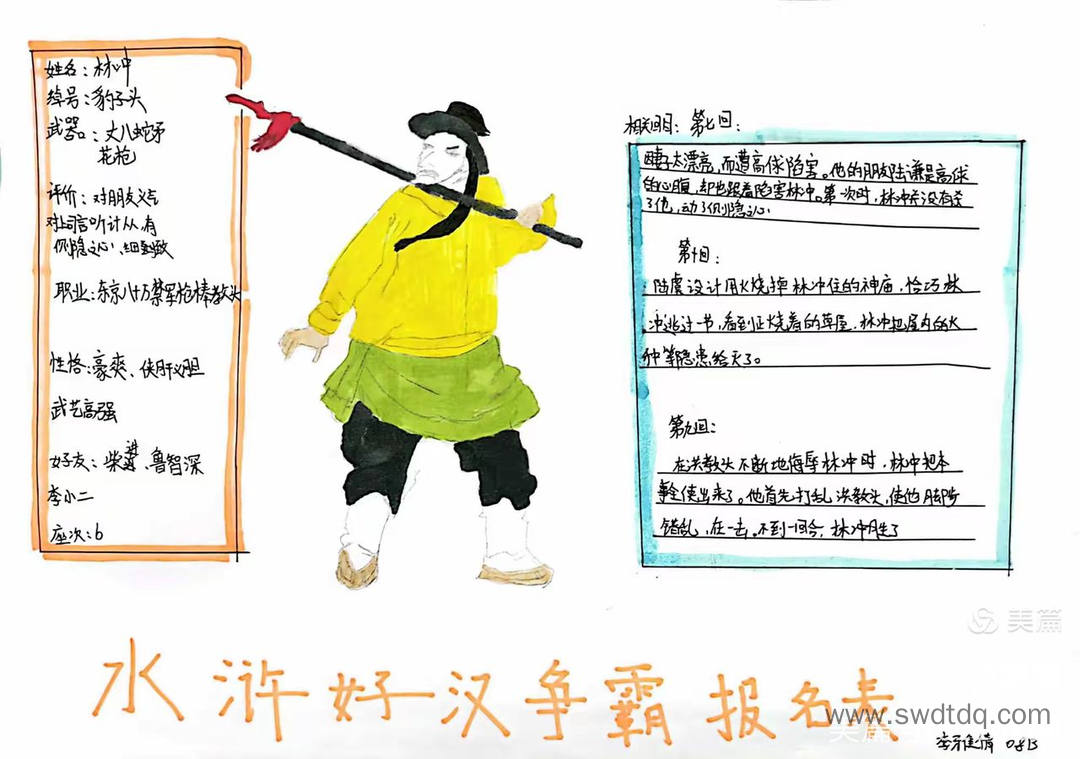 姓名：林冲
绰号：豹子头
武器：丈八蛇矛
花枪
评价：对朋友义气
对上司言听计从，有
恻隐之心、细致
职业：东京八十万禁军枪棒教头
性恪：豪爽、侠肝义胆
武艺高强
好友：柴进、鲁智深
李小二
座次：6
相关回目：第七回：
因妻子太漂亮，而遭高俅陷害。他的朋友陆谦是高俅
的心腹，却也跟着陷害林中。第一次时，林冲并没有杀
了他，动了恻隐之心
第十回：
陆虞设计用火烧掉林冲住的神庙，恰巧林
冲逃过一节，看到正烧着的草屋，林冲把屋内的火
种等隐患给灭了。
第九回：
在洪教头不断地侮辱林冲时，林冲把本
事全使出来了。他首先打乱洪教头，使他脚步
错乱，在一去。不到一回合，林冲胜了
美篇
水浒好汉争霸报名表
www.swdtdq.com
美篇
0813